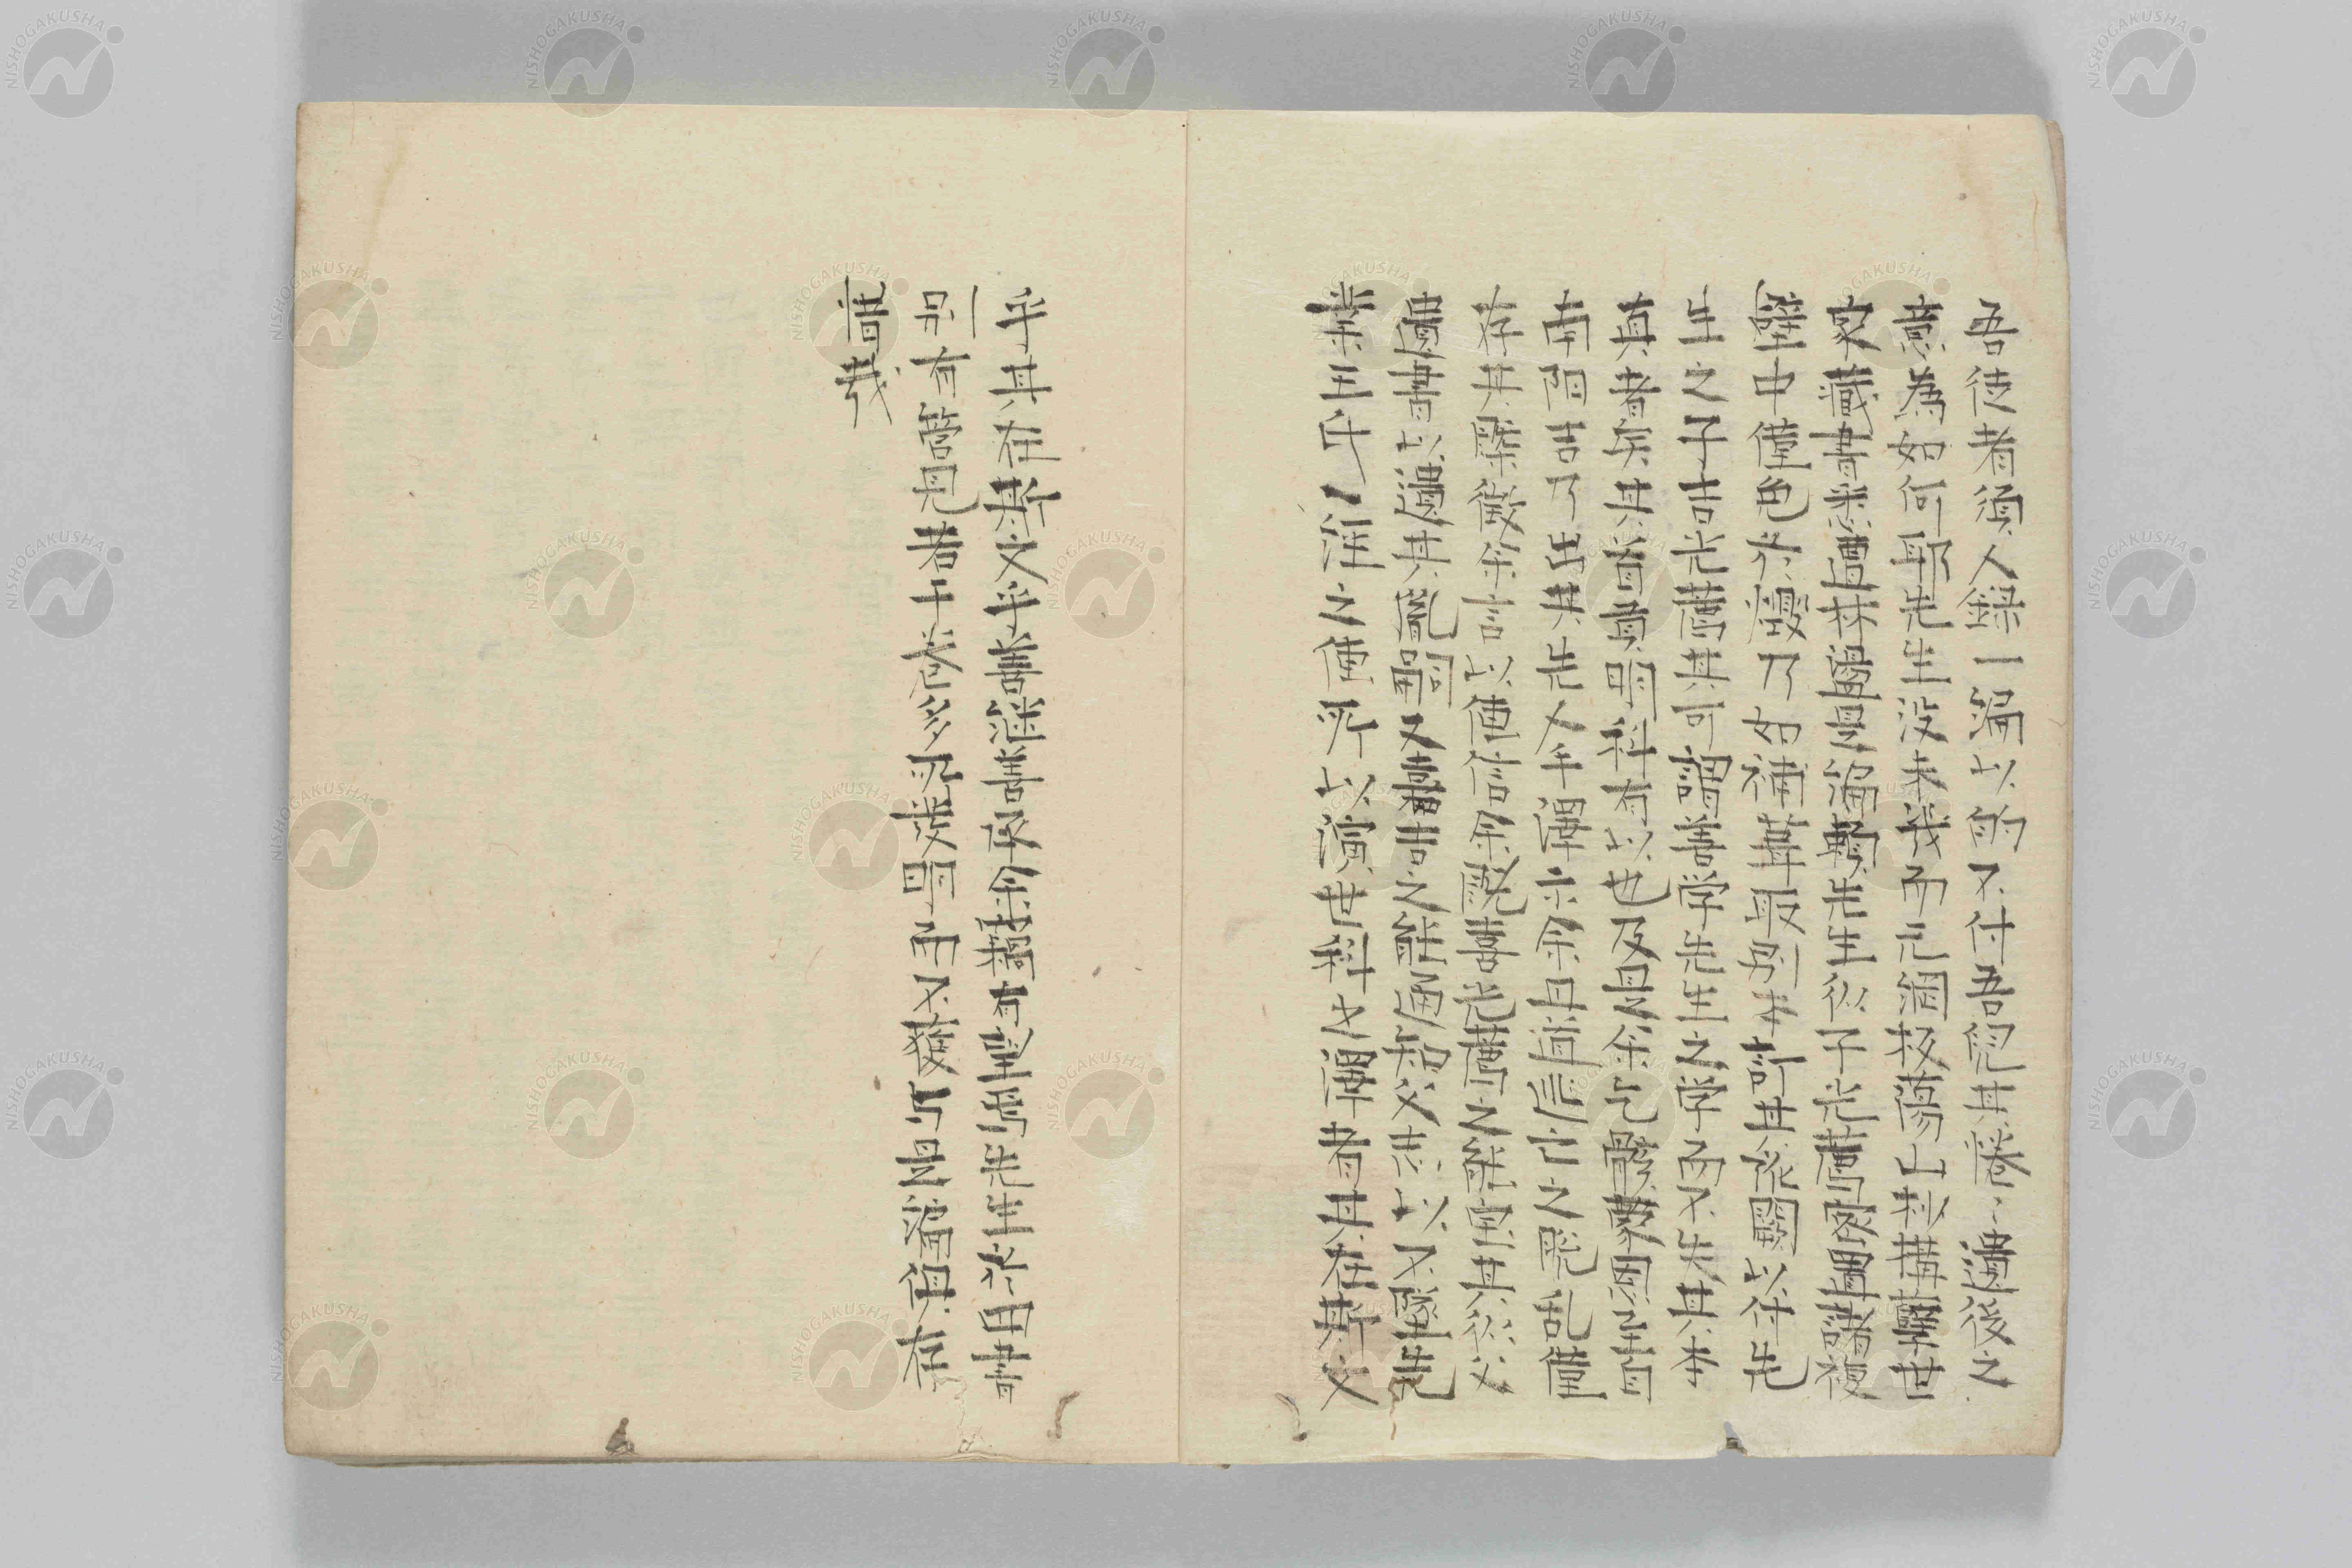 吾徒者須人録一編以的不付吾兒其惓〻遺後之
意為如何耶先生没未幾而元綱援蕩山林搆孽世
家蔵書悉遭秝是編頼先生従子光薦密置諸複
壁中僅免于燬乃如補葺取別本訂其訛闕以付先
生之子吉光薦其可謂善学先生之学而不失其本
真者矣其首貢明科有以也及是余
南陽吉乃出其先人手澤示余且道亡之乱僅
存其概徴余言以傳信余既喜光薦之能守其従父
遺書以遺其嗣又喜吉之能通知父志以不墜先
業五年丿淮之傳所以演世科之澤者其在斯文
乎其在斯文乎善継善承余窃有望焉先生他田書
別有管見若干巻多所發明而不獲與是編俱存
惜哉
NISHOGAKUSHA